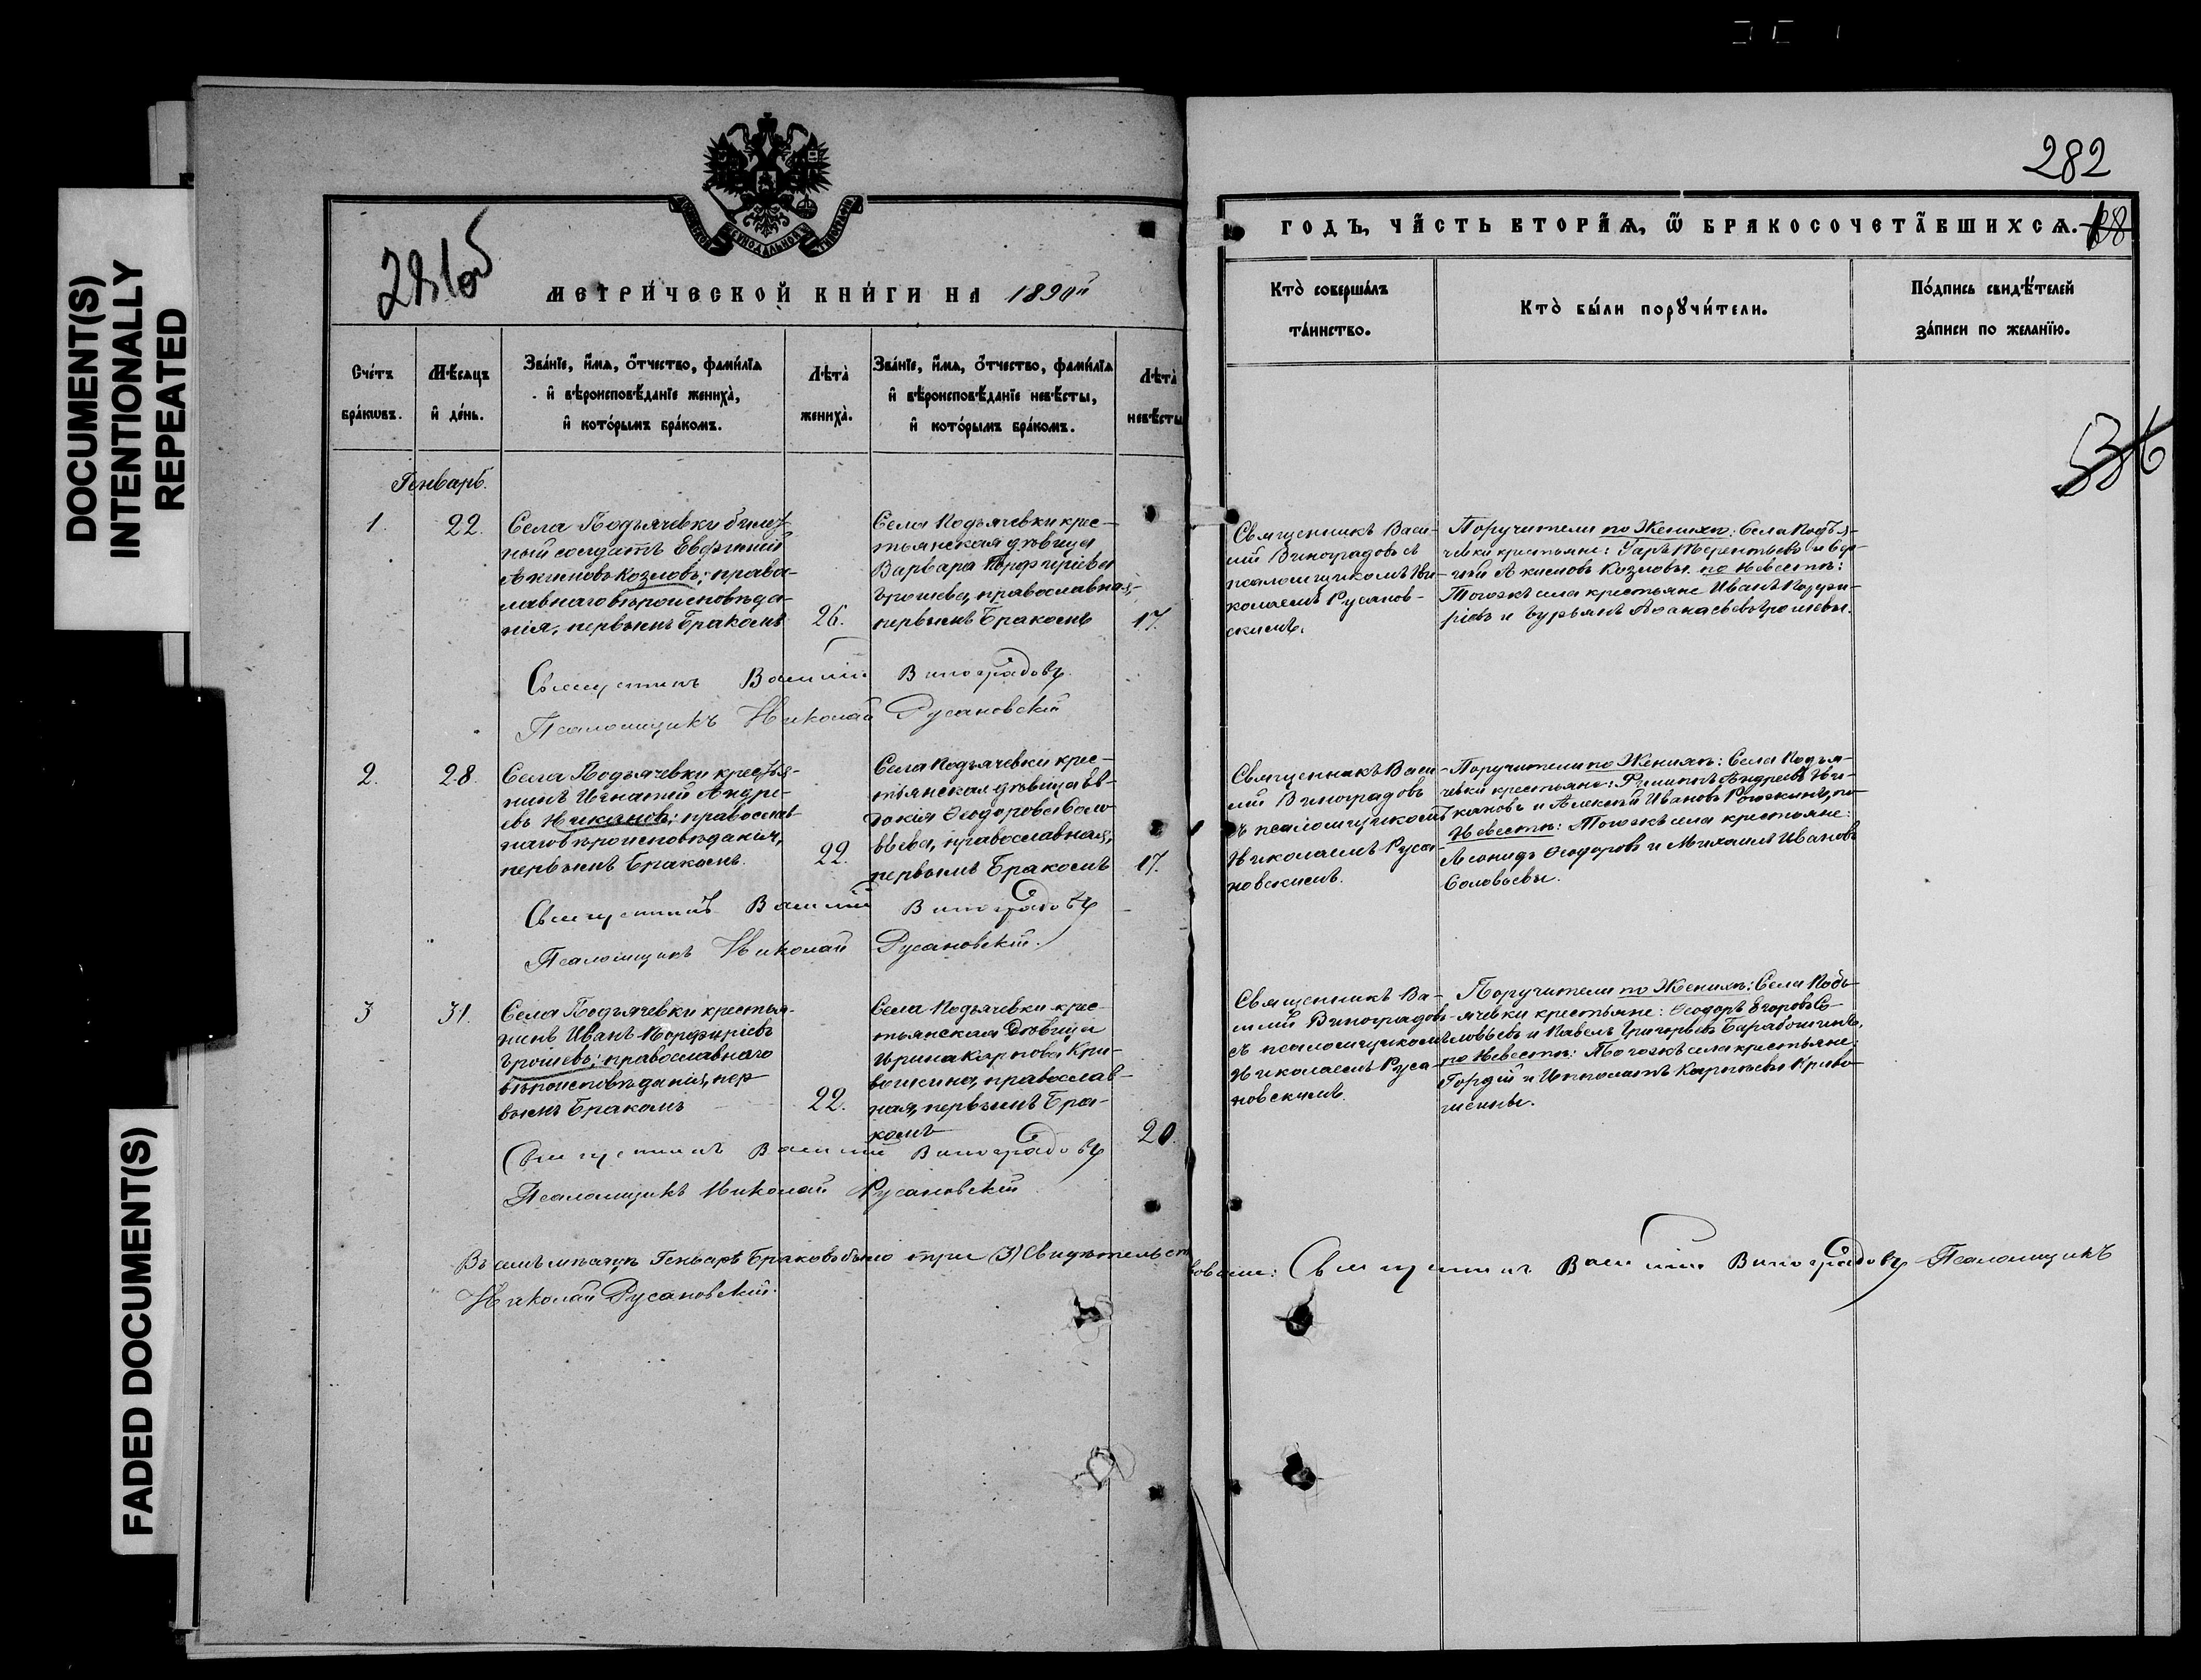 DOCUMENT(S)
INTENTIONALLY
REPEATED
FADED DOCUMENT(S)
282
МЕТРИ́ЧЕСКОЙ КНИ́ГИ НА 1890й
ГОДЪ, ЧА́СТЬ ВТОРА́Ѧ, Ѿ БРАКОСОЧЕТА́ВШИХСѦ.
Сче́тъ
бра́кѡвъ.
Мѣ́сяцъ
и де́нь.
Зва́нїе, и́мѧ, о́тчество, фами́лїѧ
и вѣроисповѣ́данїе жениха̀,
и кото́рымъ бра́комъ.
Лѣта̀
жениха̀.
Зва́нїе, и́мѧ, о́тчество, фами́лїѧ
и вѣроисповѣ́данїе невѣ́сты,
и кото́рымъ бра́комъ.
Лѣта̀
невѣ́сты
Кто̀ соверша́лъ
та́инство.
Кто̀ бы́ли порꙋчи́тели.
По́дпись свидѣ́телей
за́писи по жела́нїю.
Генварь.
1.
22.
Села Подъячевки билет-
ный солдатъ Евфимий
Акимовъ Козловъ; правос-
лавнаго вѣроисповѣда-
нія, первымъ бракомъ
26.
Села Подъячевки крес-
тьянская дѣвица
Варвара Порфиріева
Ерошева, православная,
первымъ бракомъ
17.
Священникъ Васи-
лій Виноградовъ съ
псаломщикомъ Ни-
колаемъ Русанов-
скимъ.
Поручители по Женихѣ: Села Подъя-
чевки крестьяне: Уаръ Терентьевъ и
Акимовъ Козловы. по Невестѣ:
Тогожъ села крестьяне Иванъ Порфи-
ріевъ и Гурьянъ Афанасьевъ Ерошевы.
Священникъ Василій Виноградовъ
Псаломщикъ Николай Русановскій
2.
28.
Села Подъячевки крестья-
нинъ Игнатій Андре-
евъ Никоновъ; православ-
наго вѣроисповѣданія,
первымъ бракомъ.
22.
Села Подъячевки крес-
тьянская дѣвица Ев-
докія Ѳеодорова Соло-
вьева, православная,
первымъ бракомъ
17.
Священникъ Васи-
лій Виноградовъ
съ псаломщикомъ
Николаемъ Руса-
новскимъ.
Поручители по Женихѣ: Села Подъя-
чевки крестьяне: Филиппъ Андреевъ Ни-
коновъ и Алексѣй Ивановъ Рогожинъ, по
Невестѣ: Тогожъ села крестьяне:
Леонидъ Ѳеодоровъ и Михаилъ Ивановъ
Соловьевы.
Священникъ Василій Виноградовъ
Псаломщикъ Николай Русановскій.
3
31.
Села Подъячевки крестья-
нинъ Иванъ Порфиріевъ
Ерошевъ; православнаго
вѣроисповѣданія, пер-
вымъ бракомъ
22.
Села Подъячевки крес-
тьянская дѣвица
Ирина Карпова Кри-
вошина, православ-
ная, первымъ бра-
комъ
20.
Священникъ Ва-
силій Виноградовъ
съ псаломщикомъ
Николаемъ Руса-
новскимъ.
Поручители по Женихѣ: Села Подъ-
ячевки крестьяне: Ѳеодоръ Егоровъ Со-
ловьевъ и Павелъ Григорьевъ Барабошинъ,
по Невестѣ: Тогожъ села крестьяне:
Гордѣй и Ипполитъ Карповы Криво-
шеины.
Священникъ Василій Виноградовъ
Псаломщикъ Николай Русановскій
Въ семъ мѣсяцѣ Генварѣ браковъ было три (3) Свидѣтельствовали: Священникъ Василій Виноградовъ Псаломщикъ
Николай Русановскій.